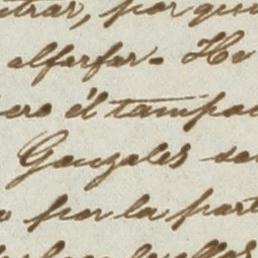 trar, por que
alfarfar. He
ero él tampo
Gonzales se
o por la part